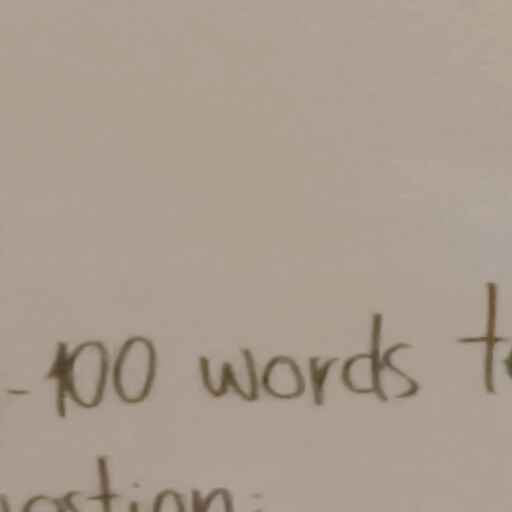 -100 words t
estion: